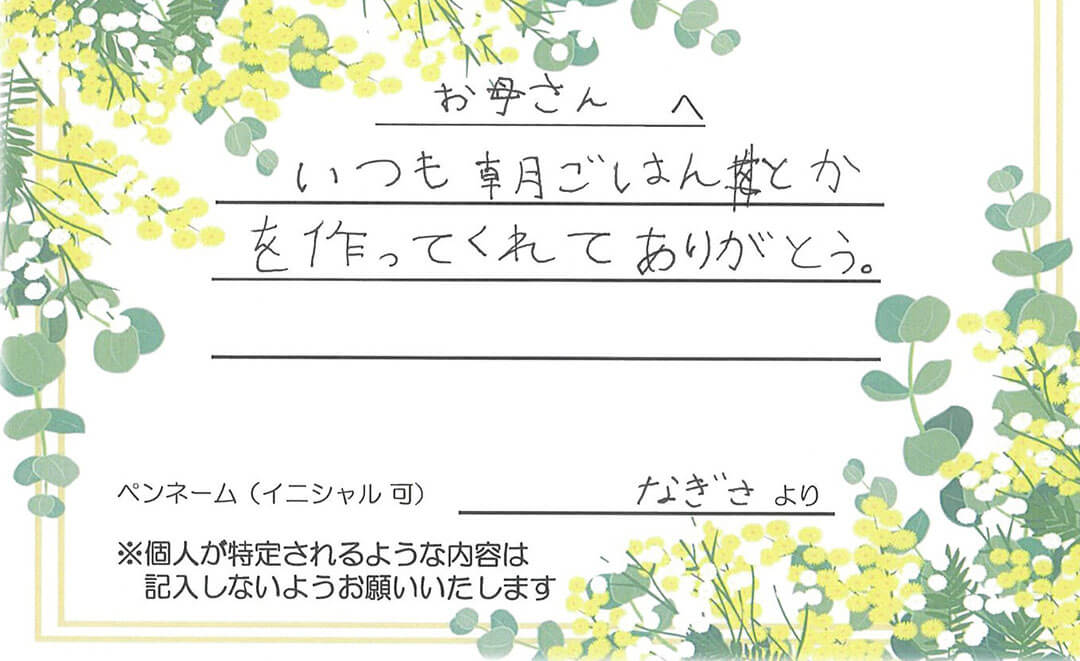 お母さん へ
いつも朝ごはんとか
を作ってくれてありがとう。
ペンネーム（イニシャル 可） なぎさ より
※個人が特定されるような内容は
記入しないようお願いいたします